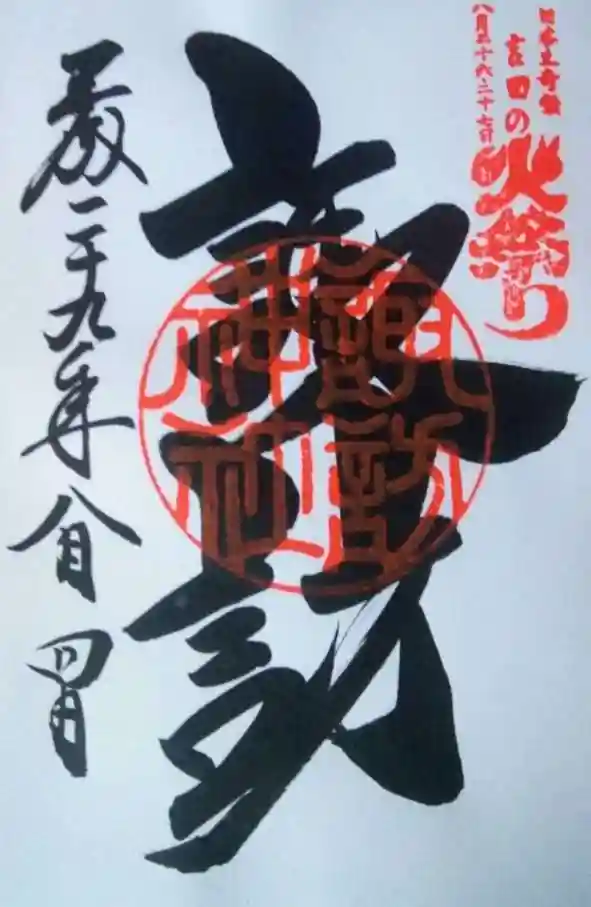 日本三奇祭
吉田の火祭り
八月二十六・二十七日
諏訪
諏訪
神社
平成二十九年八月四日